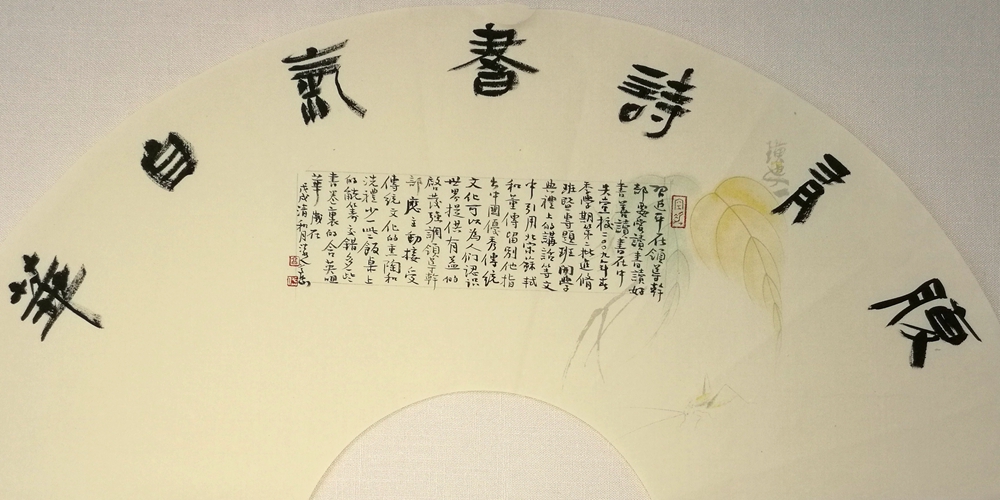 腹有詩書氣自華
習近平在領導幹
部要愛讀書讀好
書善讀書在中
央黨校二〇〇九年春
季學期第二批進修
班暨專題班開學
典禮上的講話等文
中引用北宋蘇軾
和董傳留別他指
出中國優秀傳統
文化可以為人们認识
世界提供有益的
啓發強調領導幹
部應主動接受
傳統文化的熏陶和
洗禮少一些飯桌上
的觥籌交錯多些
書卷裏的含英咀
華歲在
戊戌清和月